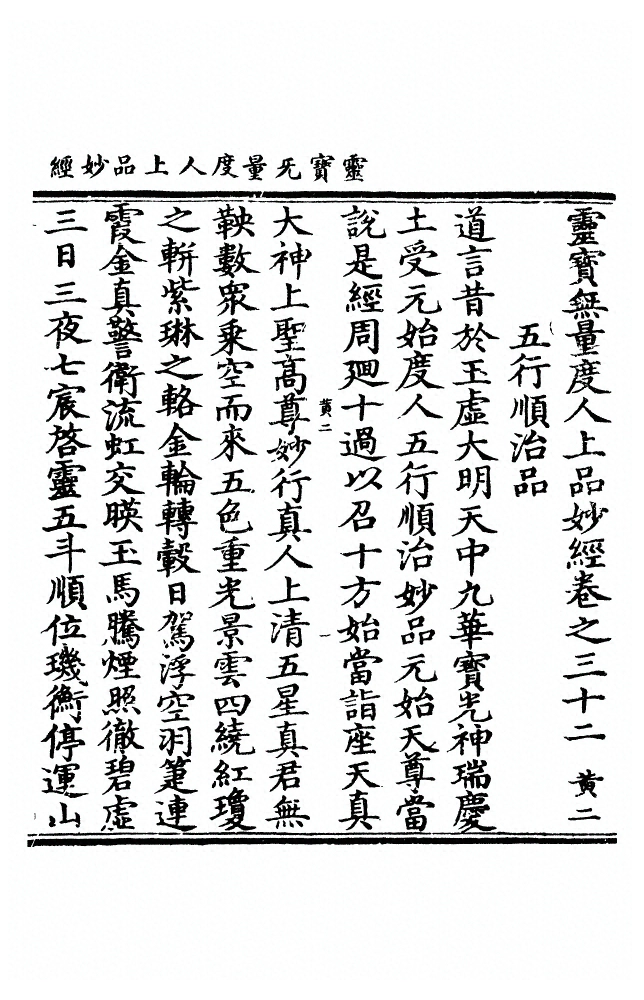 靈寶旡量度人上品妙經
靈寶無量度人上品妙經卷之三十二 黃二
五行順治品
道言昔於玉虛大明天中九華寶光神瑞慶
土受元始度人五行順治妙品元始天尊當
說是經周廻十過以召十方始當詣座天真
黃二
大神上聖高尊妙行真人上清五星真君無
鞅數眾乘空而來五色重光景雲四繞紅瓊
之軿紫琳之輅金輪轉轂日駕浮空羽蓋連
霞金真警衛流虹交暎玉馬騰煙照徹碧虛
三日三夜七宸啓靈五斗順位璣衡停運山